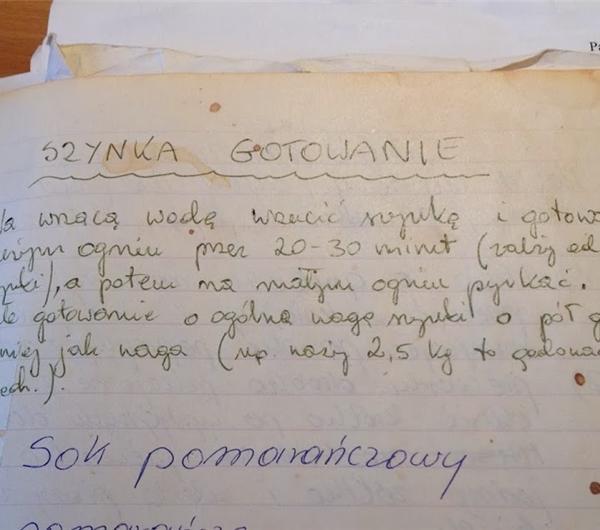 Pa
SZYNKA GOTOWANIE
Na wrzącą wodę wrzucić szynkę i gotowa
ogniu przez 20-30 minut (zależy od
), a potem na małym ogniu pyrkać.
gotowanie o ogólną wagę szynki o pół g
niej jak waga (np. waży 2,5 kg to godowa
Sok pomarańczowy